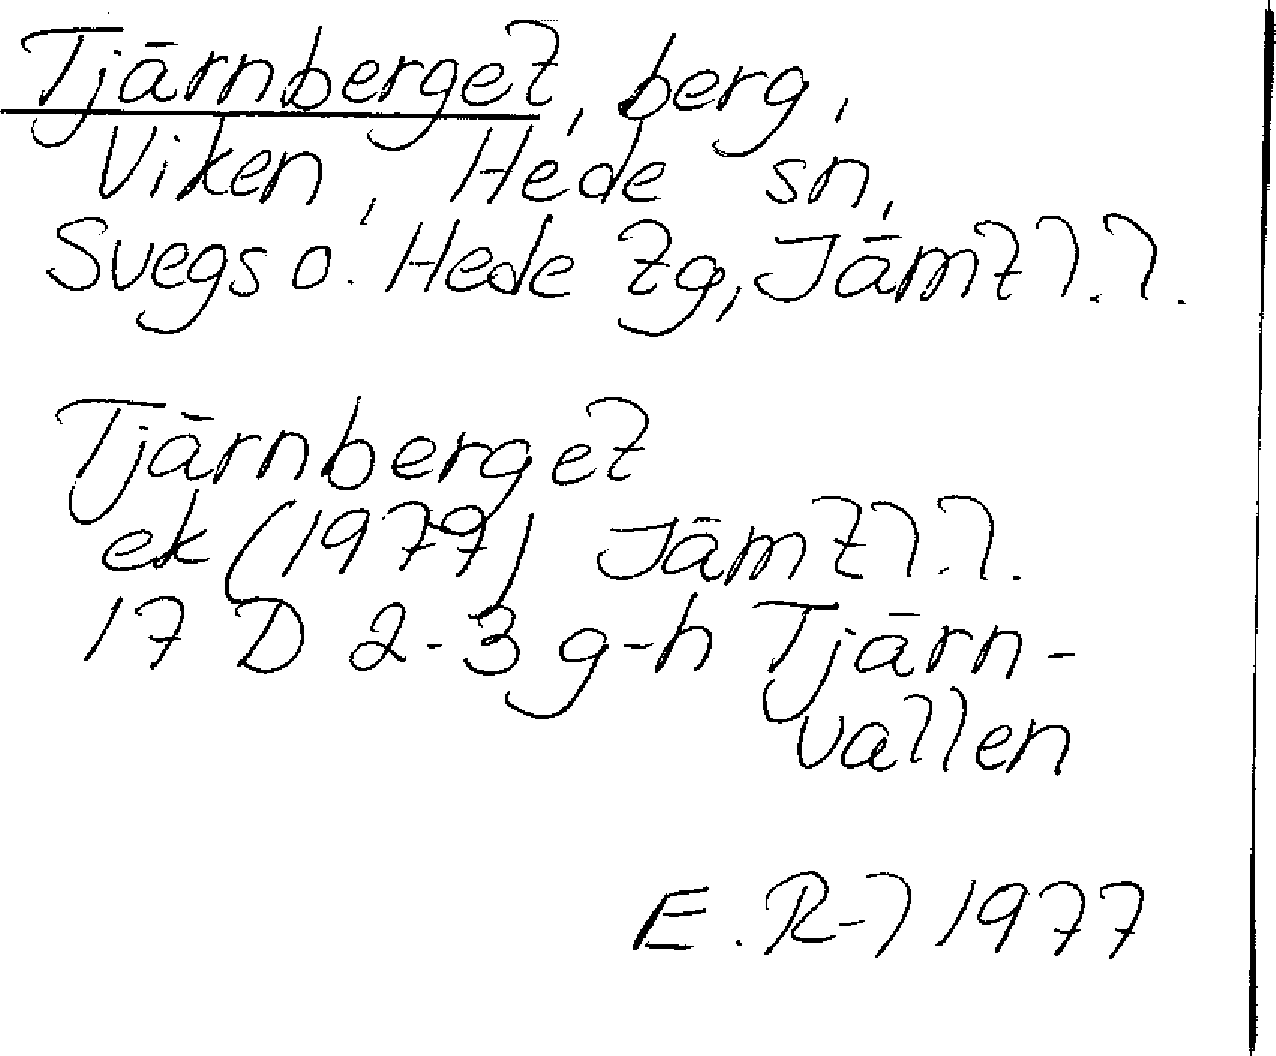 Tjärnberget, berg,
Viken, Hede sn,
Svegs o. Hede tg, Jämtl.l.
Tjärnberget
ek (1977) Jämtl.l.
17 D 2-3 g-h Tjärn-
vallen
E. R-l 1977